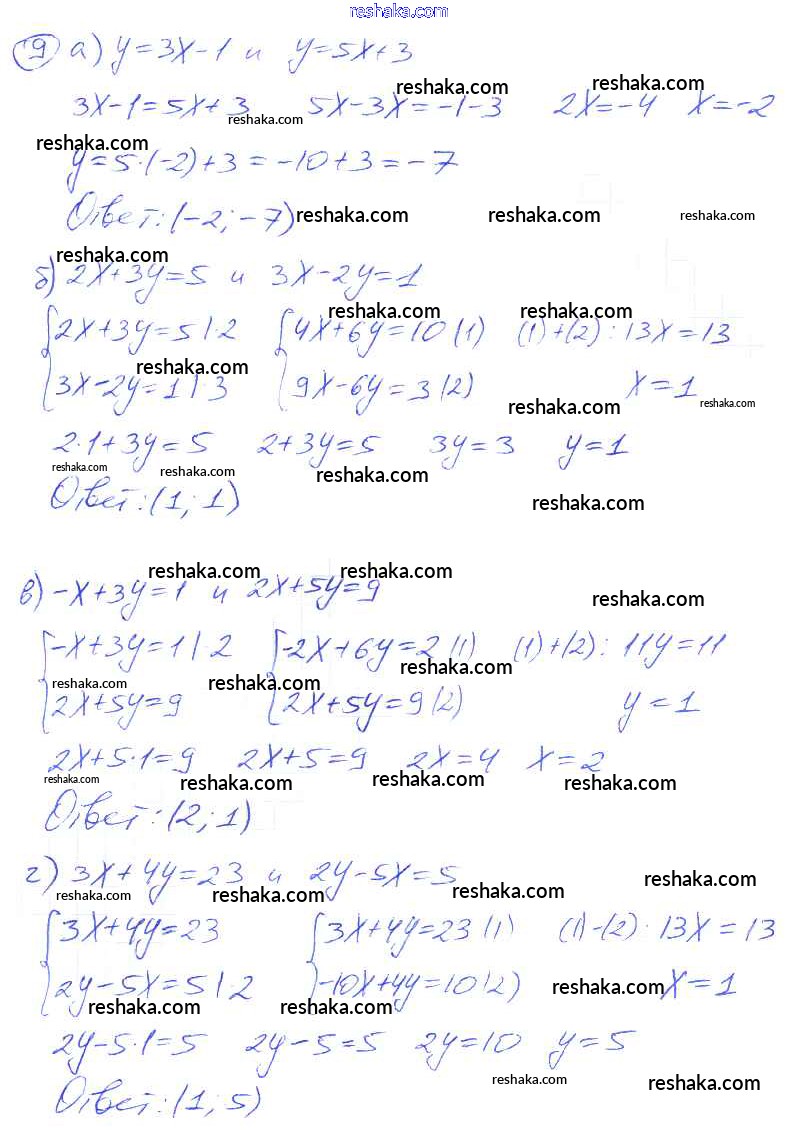 reshaka.com
9 а) y=3x-1 и y=5x+3
reshaka.com reshaka.com
3x-1=5x+3 5x-3x=-1-3 2x=-4 x=-2
reshaka.com
reshaka.com
y=5·(-2)+3=-10+3=-7
Ответ: (-2; -7) reshaka.com reshaka.com reshaka.com
reshaka.com
б) 2x+3y=5 и 3x-2y=1
reshaka.com reshaka.com
2x+3y=5 |·2 4x+6y=10 (1) (1)+(2): 13x=13
reshaka.com
3x-2y=1 |·3 9x-6y=3 (2) x=1
reshaka.com reshaka.com
2·1+3y=5 2+3y=5 3y=3 y=1
reshaka.com reshaka.com reshaka.com
Ответ: (1; 1) reshaka.com
reshaka.com reshaka.com
в) -x+3y=1 и 2x+5y=9
reshaka.com
-x+3y=1 |·2 -2x+6y=2 (1) (1)+(2): 11y=11
reshaka.com reshaka.com reshaka.com
2x+5y=9 2x+5y=9 (2) y=1
2x+5·1=9 2x+5=9 2x=4 x=2
reshaka.com reshaka.com reshaka.com reshaka.com
Ответ: (2; 1)
г) 3x+4y=23 и 2y-5x=5
reshaka.com reshaka.com reshaka.com reshaka.com
3x+4y=23 3x+4y=23 (1) (1)-(2): 13x=13
2y-5x=5 |·2 -10x+4y=10 (2) reshaka.com x=1
reshaka.com reshaka.com
2y-5·1=5 2y-5=5 2y=10 y=5
reshaka.com reshaka.com
Ответ: (1; 5)